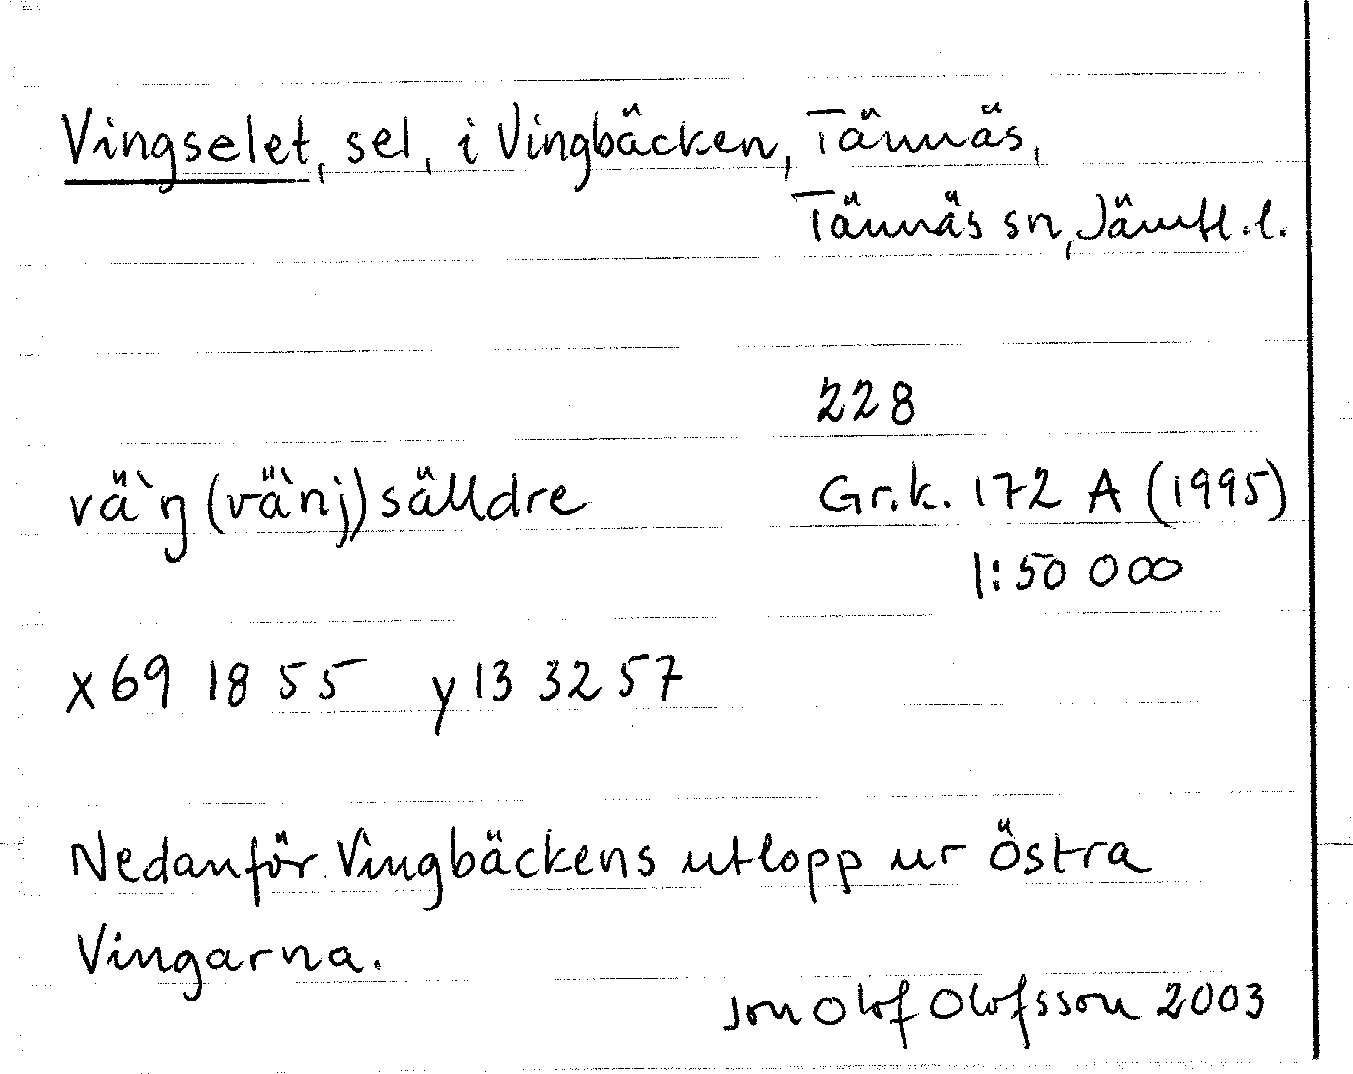 Vingselet, sel, i Vingbäcken, Tännäs,
Tännäs sn, Jämtl. l.
228
vä`ŋ (vä`nj) sälldre
Gr.k. 172 A (1995)
1:50 000
x 69 18 55 y 13 32 57
Nedanför Vingbäckens utlopp ur Östra
Vingarna.
Jon Olof Olofsson 2003